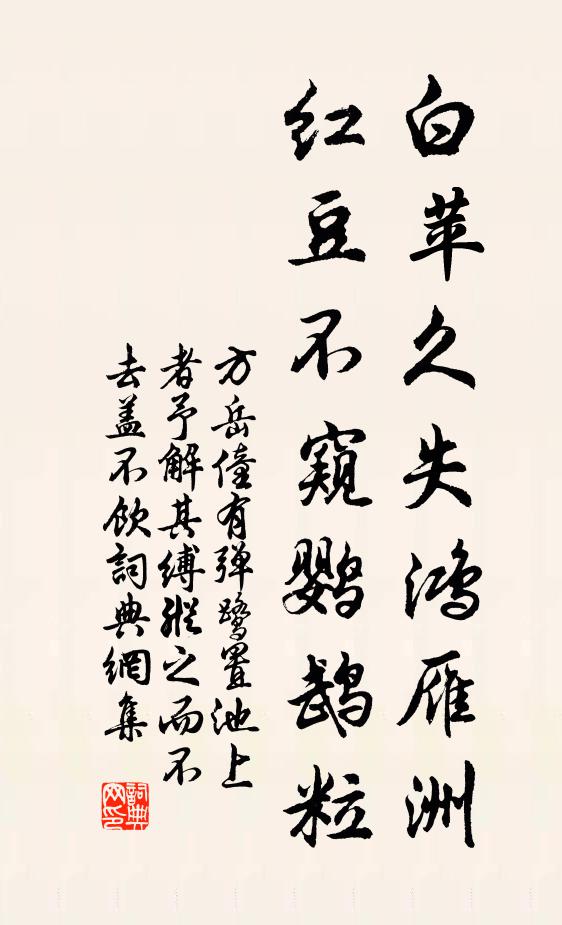 白苹久失鸿雁洲
红豆不窥鹦鹉粒
方岳僮有弹鹭置池上
者予解其缚纵之而不
去盖不饮詞典網集
詞典
网印